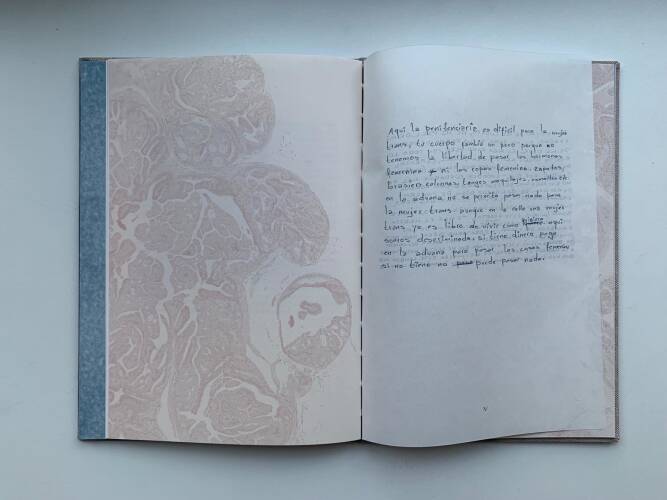 Aqui la penitenciaria es dificil para la mujer
trans, tu cuerpo cambia un poco porque no
tenemos la libertad de pasar las hormonas
femenino y ni las ropas femenina, zapatos,
brasiers calzones, tangas maquillajes,
en la aduana no se permite pasar nada para
la mujer trans. aunque en la calle una mujer
trans ya es libre de vivir como quiera aqui
somos descriminada. si tiene dinero paga
en la aduana para pasar las cosas femenin
si no tiene no puede pasar nada.